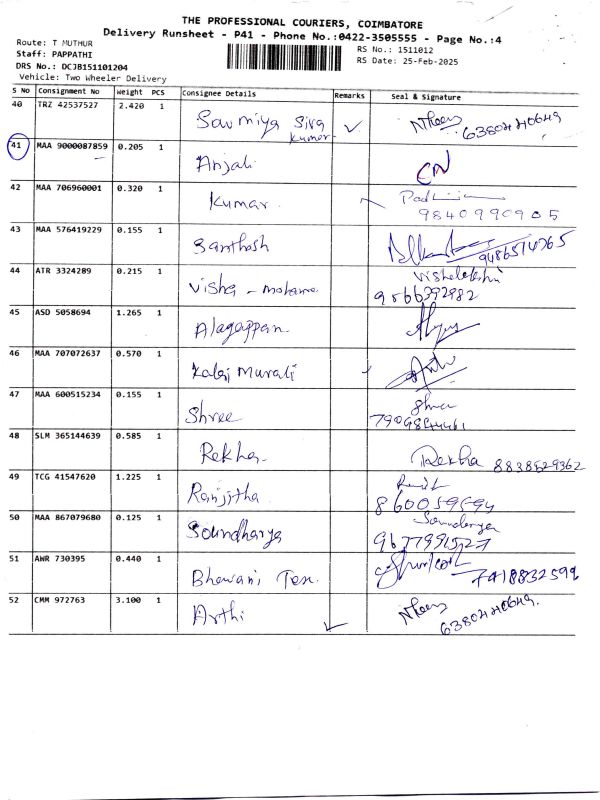 THE PROFESSIONAL COURIERS, COIMBATORE
Delivery Runsheet - P41 - Phone No.:0422-3505555 - Page No.:4
Route: T MUTHUR
RS No.: 1511012
Staff: PAPPATHI
RS Date: 25-Feb-2025
DRS No.: DCJB151101204
Vehicle: Two Wheeler Delivery
S No Consignment No Weight PCS Consignee Details Remarks Seal & Signature
40 TRZ 42537527 2.420 1 Sowmiya Siva
Kumar 6380440649
41 MAA 9000087859 0.205 1 Anjali
42 MAA 706960001 0.320 1 Kumar
9840990905
43 MAA 576419229 0.155 1 Santhosh
44 ATR 3324289 0.215 1
9566392982
45 ASD 5058694 1.265 1 Alagappan
46 MAA 707072637 0.570 1 Kalai Murali
47 MAA 600515234 0.155 1 Shree
48 SLM 365144639 0.585 1 Rekha Rekha 8838529362
49 TCG 41547620 1.225 1 Ranjitha
50 MAA 867079680 0.125 1 Soundharya
51 AWR 730395 0.440 1 Bhavani
7418832599
52 CMM 972763 3.100 1 Arthi
6380440649